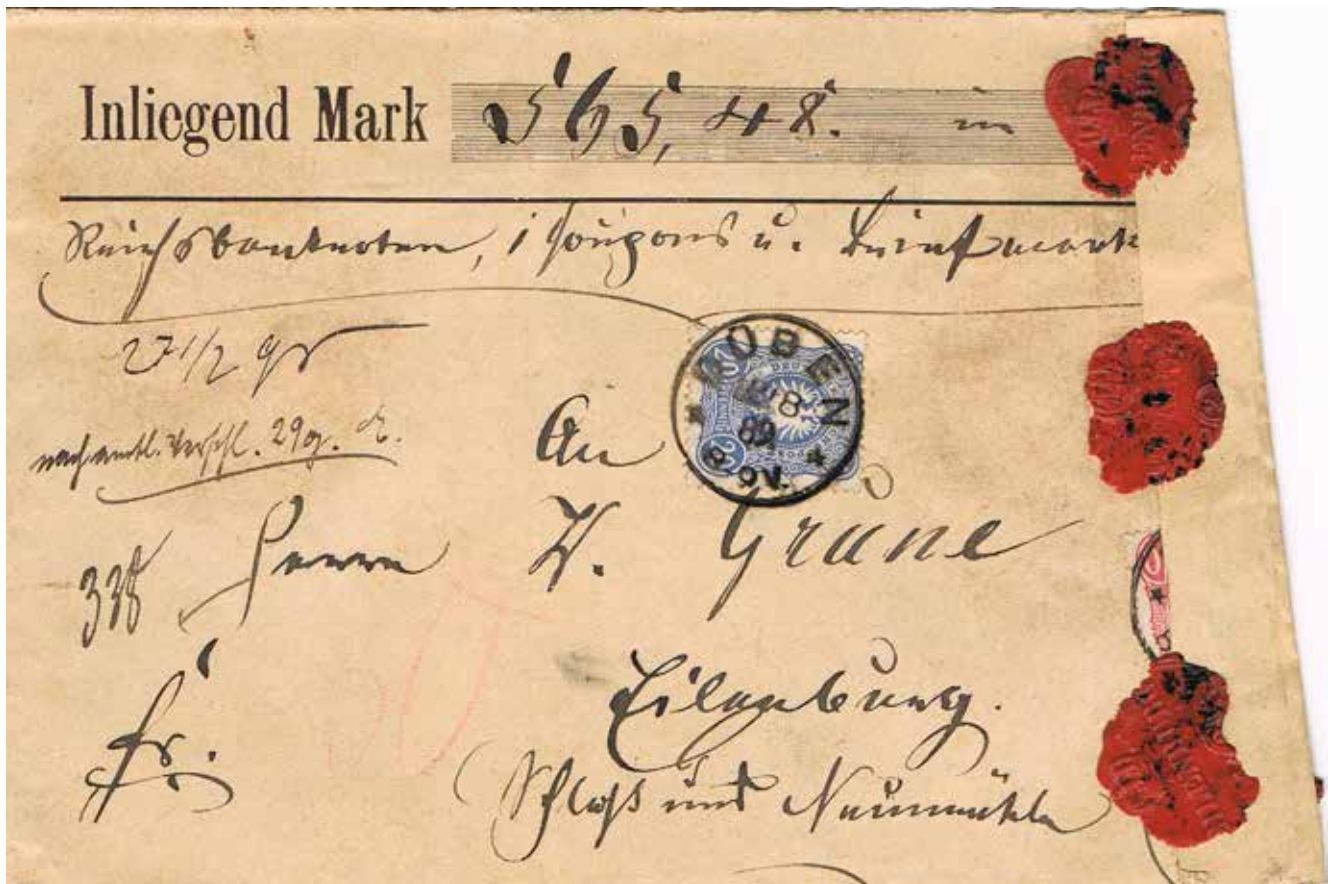 Inliegend Mark 565,48. in
Reichsbanknoten, 1 Coupons u. Briefmarke
27 1/2 gr
nach amtl. Verschl. 29 g.
An
KÖBEN
8
89
8-9V.
Herrn W. Grune
338
Eilenburg.
fr.
Schloß und Neumühle